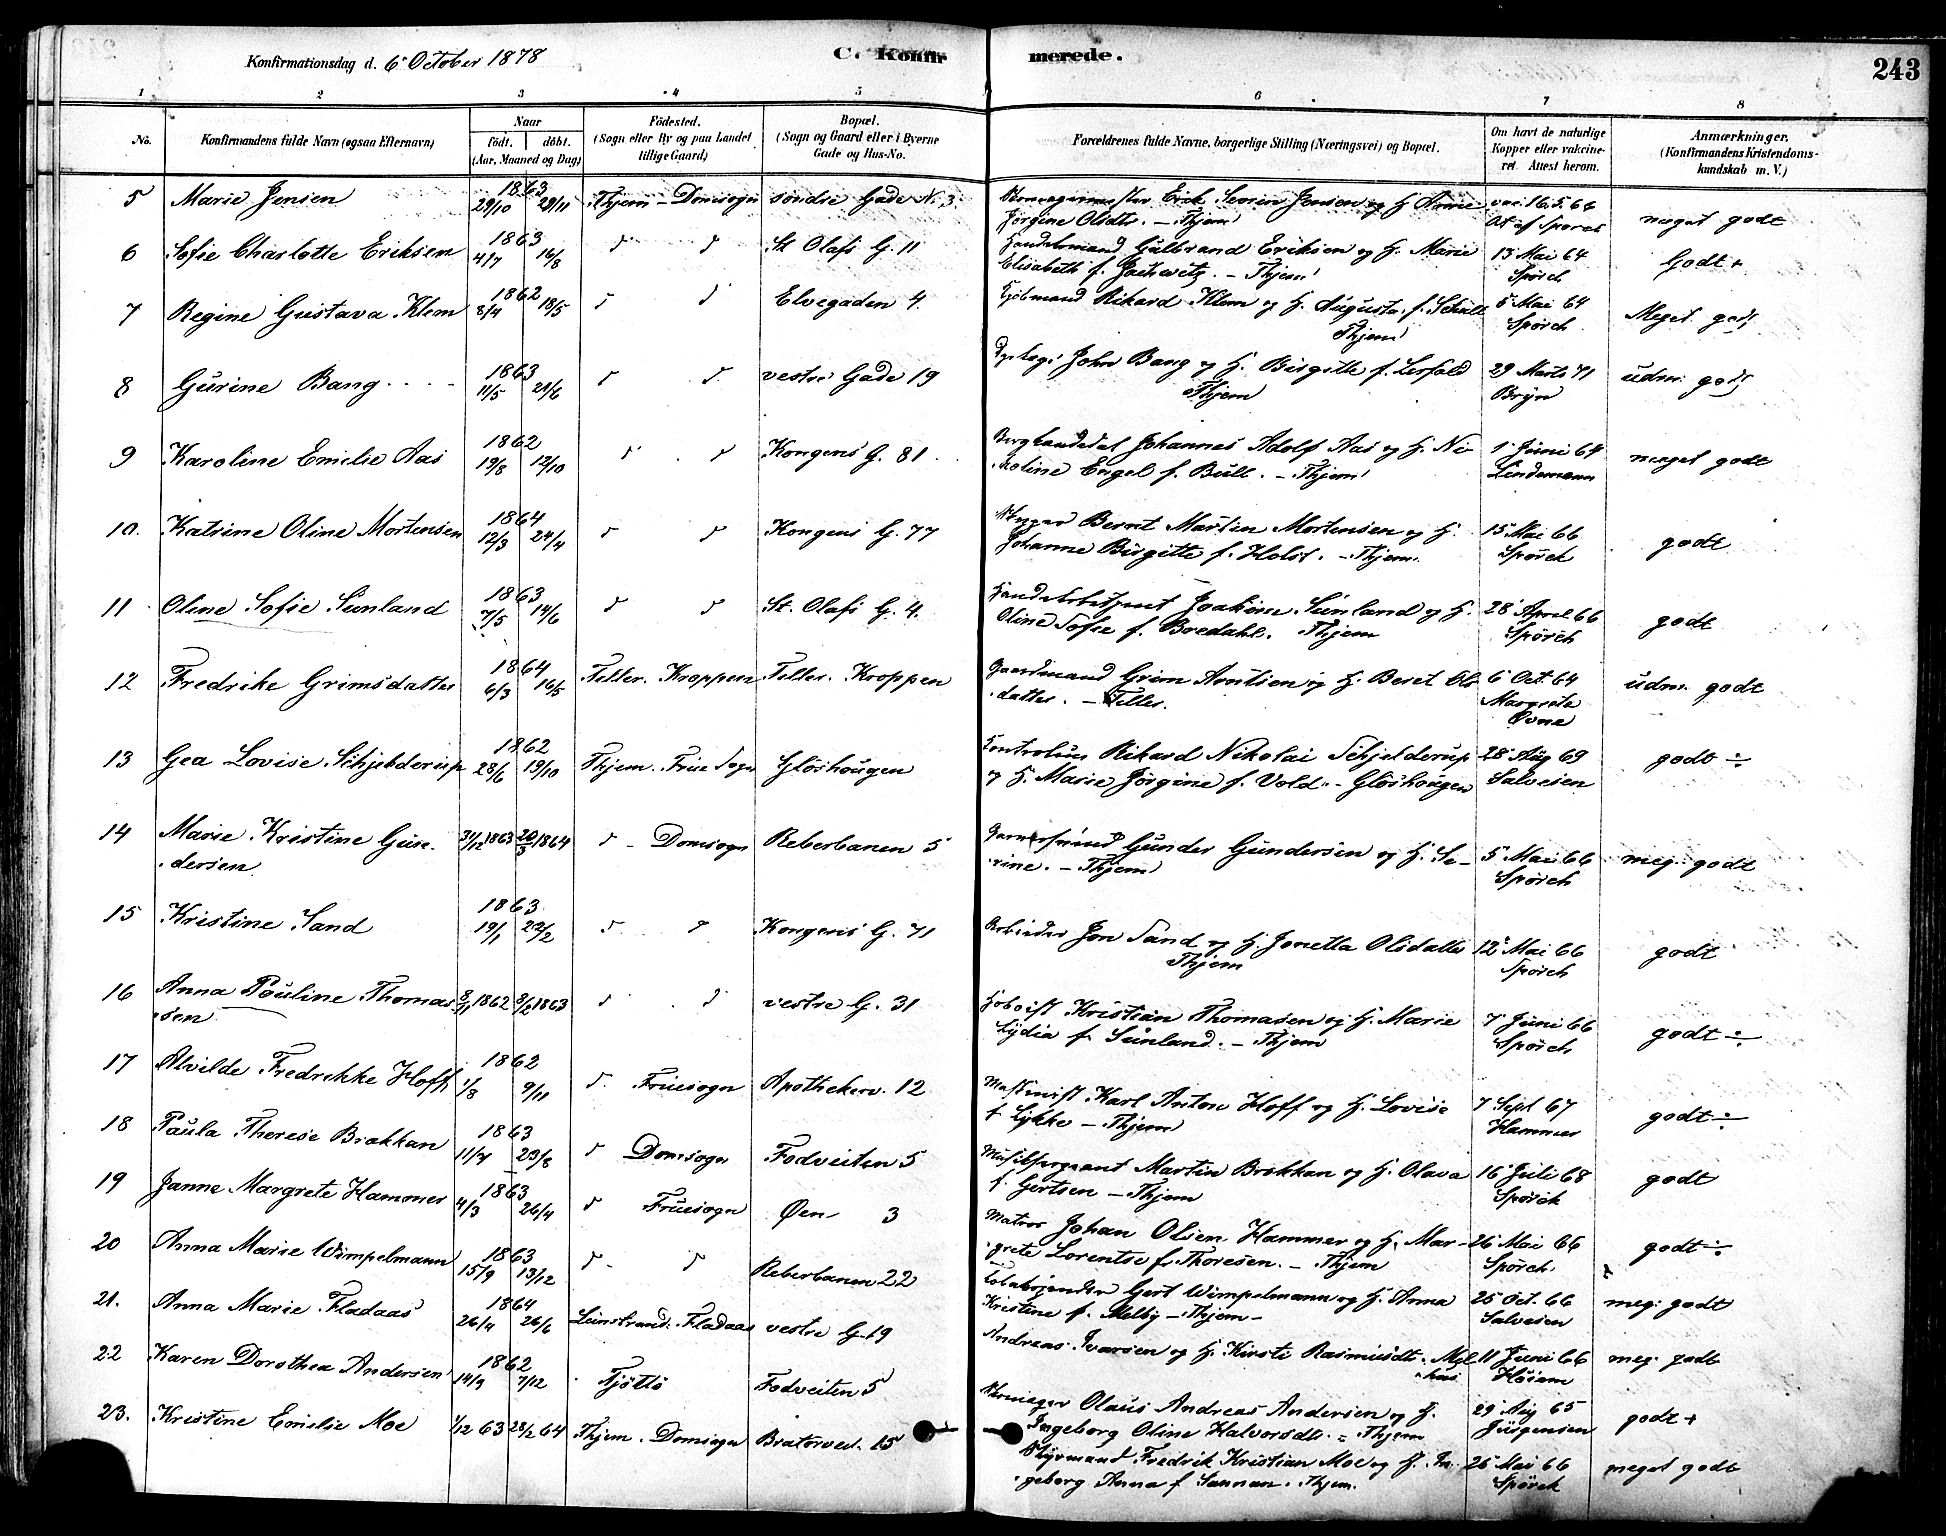 Konfirmationsdag d. 6' October 1878
C. Konfir merede.
243
1 2 3 4 5 6 7 8
No.
Konfirmandens fulde Navn (ogsaa Efternavn)
Naar
født. døbt.
(Aar, Maaned og Dag)
Fødested.
(Sogn eller By og paa Landet
tillige Gaard)
Bopæl.
(Sogn og Gaard eller i Byerne
Gade og Hus-No.
Forældrenes fulde Navne, borgerlige Stilling (Næringsvei) og Bopæl.
Om havt de naturlige
Kopper eller vakcine-
ret Attest herom.
Anmærkninger.
(Konfirmandens Kristendoms-
kundskab m. V.)
5 Marie Jensen 1863 29/10 29/11 Thjem - Domsogn søndre Gade N. 3 Erik Severin Jensen og H. Anne vac. 16.5.66 meget godt
Jørgine Olsdtr. - Thjem
6 Sofie Charlotte Eriksen 1863 4/7 16/8 d d St Olafs G. 11 Handelsmand Gulbrand Eriksen og H. Marie 13 Mai 64 Godt +
Elisabeth f. - Thjem Spørch
7 Regine Gustava Klem 1862 8/4 18/5 d d Elvegaden 4. Kjøbmand Rikard Klem og H. Augusta f. Schult 5 Mai 64 Meget godt
Thjem Spørch
8 Gurine Bang 1863 11/5 21/6 d d vestre Gade 19 John Bang og H. Birgitte f. Lerfald 29 Marts 71 udm: godt
Thjem Bryn
9 Karoline Emilie Aas 1862 19/8 12/10 d d Kongens G. 81 Johannes Adolf Aas og H. Ni- 1' Juni 64 meget godt
koline Engel f. Bull. - Thjem Lindemann
10. Katrine Oline Mortensen 1864 12/3 24/4 d d Kongens G. 77 Bernt Martin Mortensen og H. 15 Mai 66 godt
Johanne Birgitte f. Holst. - Thjem. Spørch
11 Oline Sofie Sunland 1863 7/5 14/6 d d St. Olafs G. 4. Joakim Sunland og H. 28' April 66 godt
Oline Sofie f. Bredahl. Thjem Spørch
12 Fredrike Grimsdatter 1864 6/3 16/5 Tiller. Kroppen Tiller. Kroppen Gaardmand Grim Arntsen og H. Beret Ols 6 Oct 64 udm. godt
datter. - Tiller. Margrete
Ovne
13 Gea Lovise Schjelderup 1862 28/6 19/10 Thjem. Frue Sogn Gløshougen Rikard Nikolai Schjelderup 28' Aug 69 godt ÷
og H. Marie Jørgine f. Vold - Gløshougen Salvesen
14 Marie Kristine Gun- 31/12 1863 20/3 1864 d - Domsogn Reberbanen 5 Gunder Gundersen og H. Se- 5 Mai 66 meg. godt
dersen rine. - Thjem Spørch
15 Kristine Sand 1863 19/1 22/2 d d Kongens G. 71 Arbeider Jon Sand og H. Jonetta Olsdatter 12' Mai 66 godt
Thjem Spørch
16 Anna Pauline Thomas 8/11 1862 8/2 1863 d d vestre G. 31 Kristian Thomasen og H. Marie 7' Juni 66 godt ÷
sen Lydia f. Sunland. - Thjem Spørch
17 Alvilde Fredrikke Hoff 1862 1/8 9/11 d. Fruesogn Apothekerv. 12 Maskinist Karl Anton Hoff og H. Lovise 7 Sept 67 godt ÷
f. Lykke - Thjem Hammer
18 Paula Therese Brakkan 1863 11/7 23/8 d Domsogn Fodveiten 5 Martin Brakkan og H. Olava 16 Juli 68 godt
f. Gertsen - Thjem Spørch
19 Janna Margrete Hammer 1863 4/3 26/4 d Fruesogn Øen 3 Matros Johan Olsen Hammer og H. Mar- 26 Mai 66 godt ÷
grete Lorentse f. Thoresen. - Thjem Spørch.
20 Anna Marie Wimpelmann 1863 15/9 13/12 d - d Reberbanen 22 Gert Wimpelmann og H. Anna 25 Oct. 66 meg: godt
Kristine f. Melby - Thjem - Salvesen
21. Anna Marie Fladaas 1864 26/4 26/6 Leinstrand. Fladaas vestre G. 19 Andreas Ivarsen og H. Kirsti Rasmusdtr. Mel 11 Juni 66 meg. godt
hus
22 Karen Dorothea Andersen 1862 14/9 7/12 Tjøttø Fodveiten 5 Olaus Andreas Andersen og H. 29' Aug 65 godt +
Ingeborg Oline Halvorsdtr. - Thjem Jürgensen
23. Kristine Emilie Moe 1/12 63 28/2 64 Thjem. Domsogn Bratørved. 15 Styrmand Fredrik Kristian Moe og H. In- 26 Mai 66 meget godt
geborg Anna f. Sannan. Thjem. Spørch